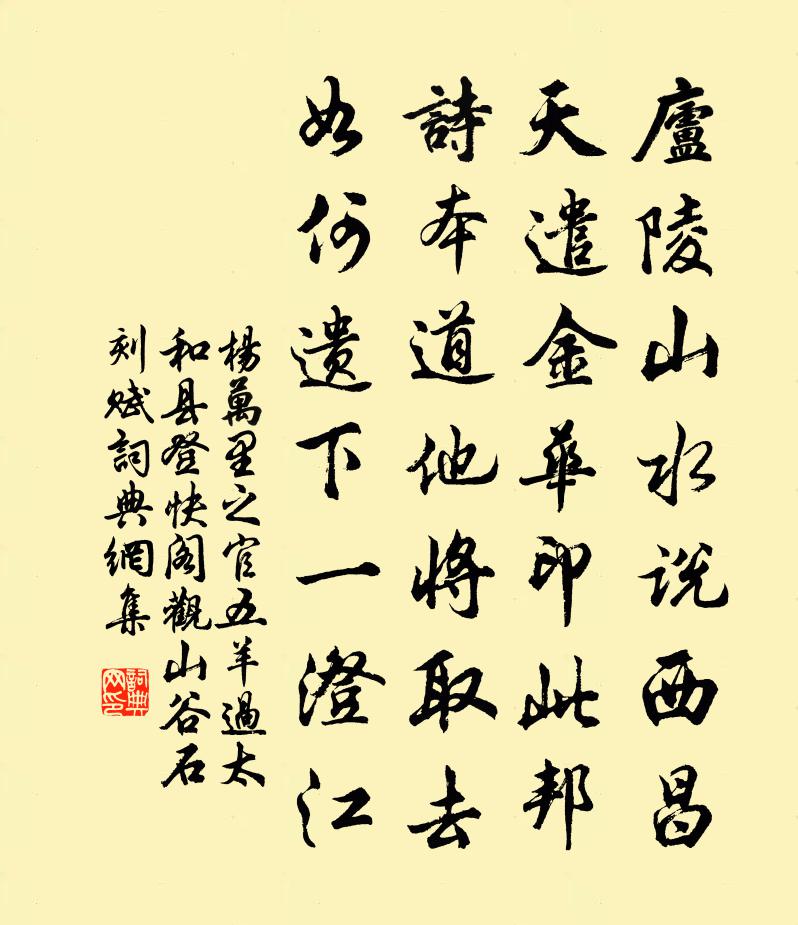 廬陵山水說西昌
天遣金華印此邦
詩本道他將取去
如何遺下一澄江
楊萬里之官五羊過太
和县登快阁觀山谷石
刻赋詞典網集
詞典
网印